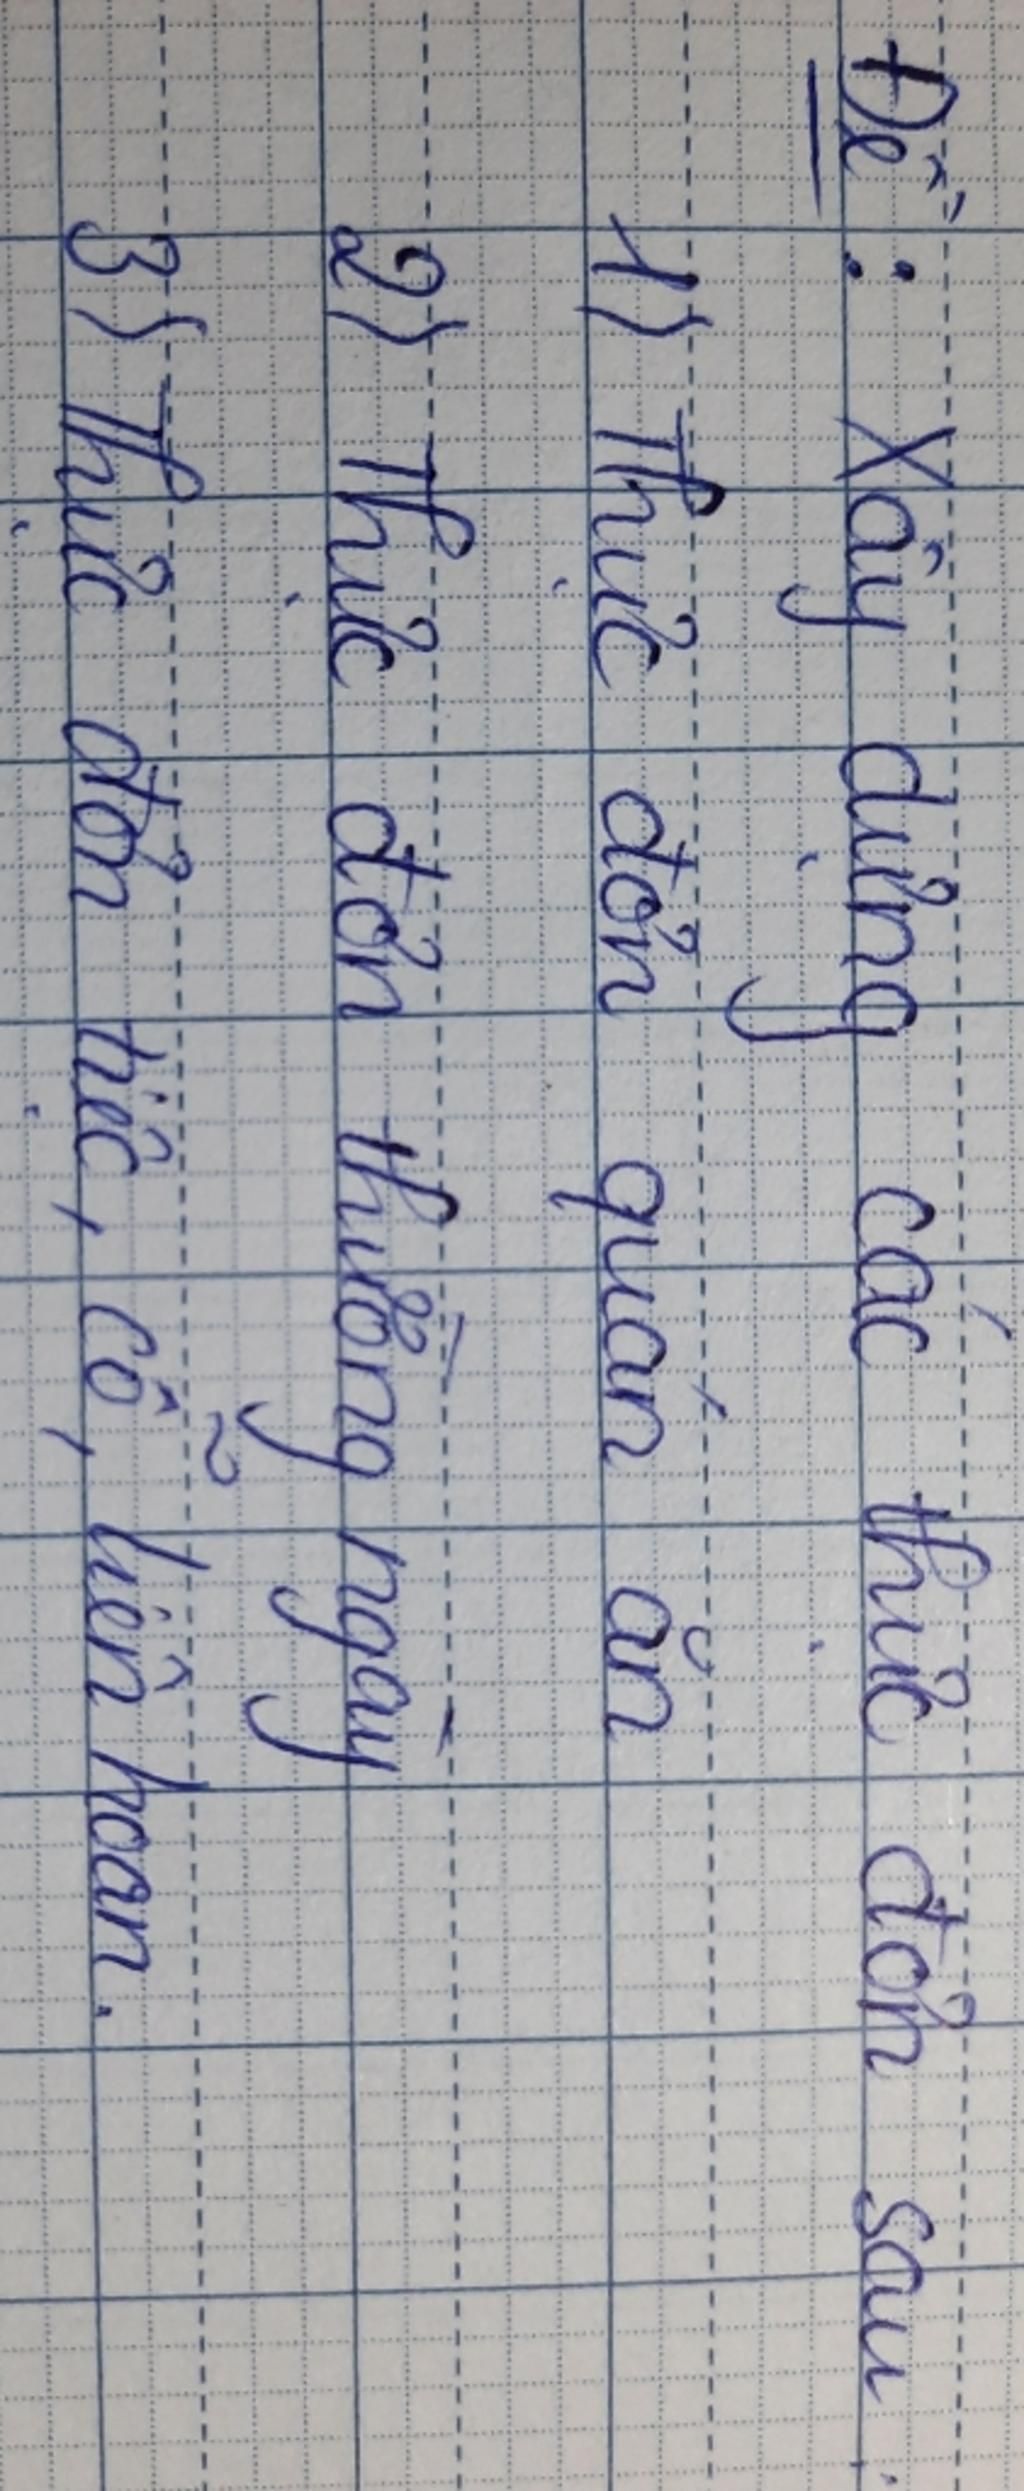 Đề: Xây dựng các thực đơn sau:
1} Thực đơn quán ăn
2} Thực đơn thường ngày
3} Thực đơn tiệc, cỗ, liên hoan.